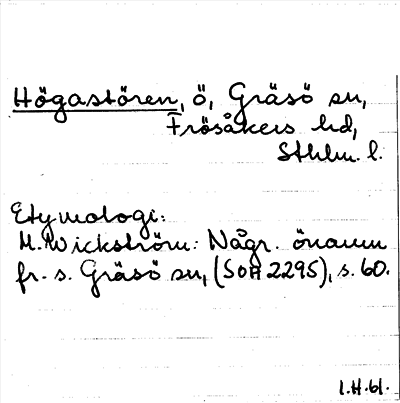 Högastören, ö, Gräsö sn,
Frösåkers hd,
Sthlm. l.
Etymologi:
M. Wickström: Någr. önamn
fr. s. Gräsö sn, (SOA 2295), s. 60.
1.H.61.